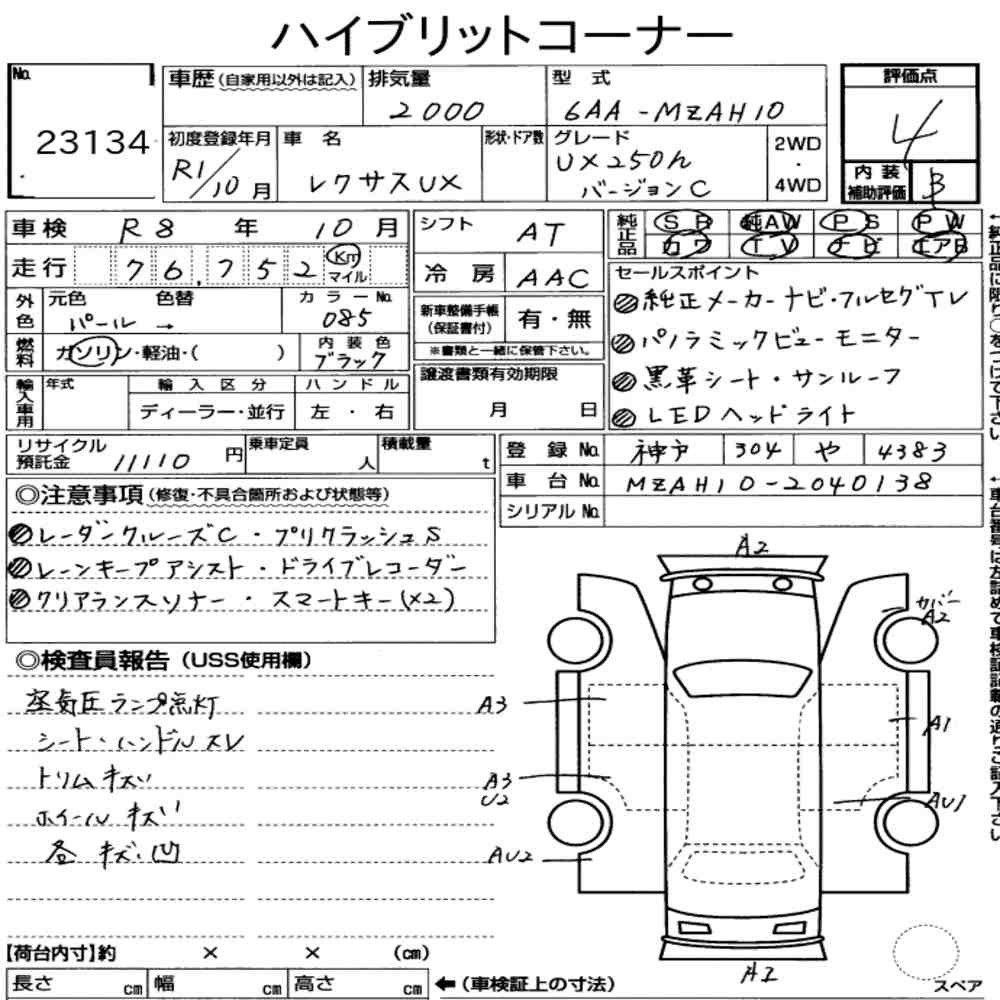 ハイブリットコーナー
No.
23134
車歴(自家用以外は記入)
排気量
2000
型 式
6AA-MZAH10
評価点
4
初度登録年月
R1/10月
車 名
レクサスUX
形状・ドア数
グレード
UX250h
バージョンC
2WD
・
4WD
内 装
補助評価
B
車検 R8 年 10月
走行 76,752 Km
マイル
シフト AT
冷 房 AAC
純正品
SR 純AW PS PW
カワ TV ナビ エアB
←純正品に限り○をつけて下さい
外色
元色 色替
パール →
カラーNo.
085
燃料
ガソリン・軽油・( )
内装色
ブラック
新車整備手帳
(保証書付)
有・無
※書類と一緒に保管下さい。
輸入車用
年式
輸入区分
ディーラー・並行
ハンドル
左・右
譲渡書類有効期限
月 日
セールスポイント
純正メーカーナビ・フルセグTV
パノラミックビューモニター
黒革シート・サンルーフ
LEDヘッドライト
リサイクル
預託金
11110円
乗車定員
人
積載量
t
登 録 No. 神戸 304 や 4383
車 台 No. MZAH10-2040138
シリアル No.
←車台番号は左詰めで車検証記載の通りご記入下さい
◎注意事項(修復・不具合箇所および状態等)
レーダークルーズC・プリクラッシュS
レーンキープアシスト・ドライブレコーダー
クリアランスソナー・スマートキー(×2)
◎検査員報告(USS使用欄)
空気圧ランプ点灯
シート・ハンドルスレ
トリムキズ
ホイールキズ
各キズ・凹
A2
カバー
A2
A3
A1
A3
U2
AU1
AU2
A2
【荷台内寸】約 × × (cm)
長さ cm 幅 cm 高さ cm
←(車検証上の寸法)
スペア